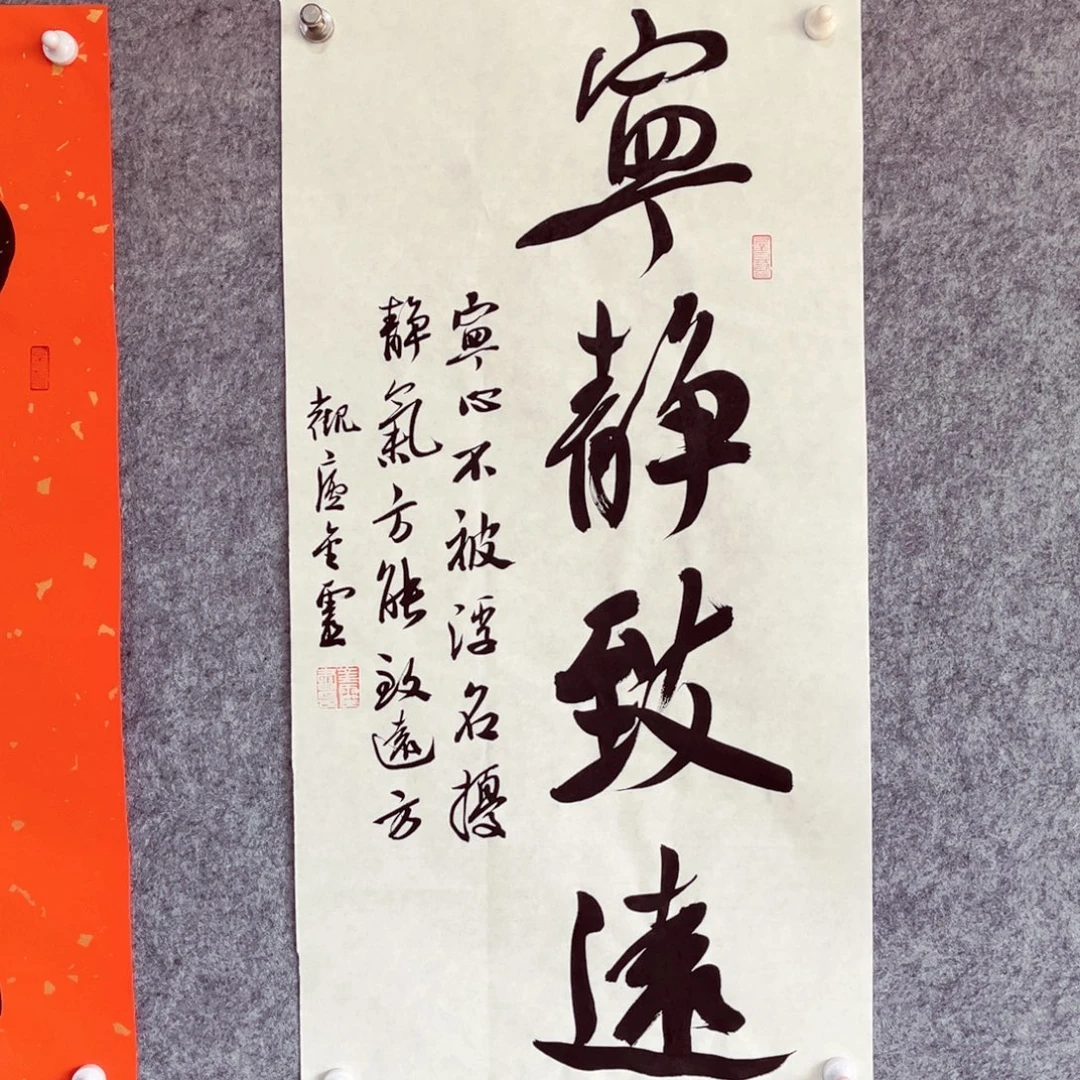 寧靜致遠
寧心不被浮名擾
靜氣方能致遠方
觀廬金靈